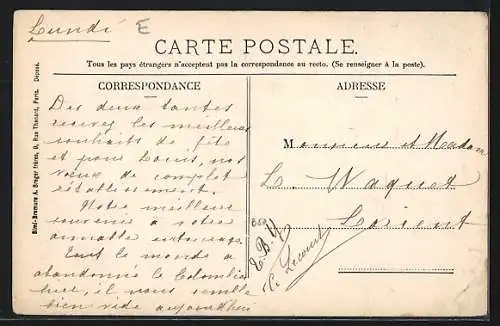 Lundi
E
CARTE POSTALE.
Tous les pays étrangers n'acceptent pas la correspondance au recto. (Se renseigner à la poste).
CORRESPONDANCE
Des deux tantes
recevez les meilleurs
souhaits de fête
et pour Louis, nos
vœux de complet
rétablissement.
Notre meilleur
souvenir à votre
aimable entourage.
Tout le monde a
abandonné le Colombier
hier, il nous semble
bien vide aujourd'hui
ADRESSE
Monsieur et Madame
L. Waquet
Lorient
E. B. Y
Lecourt
Déposé.